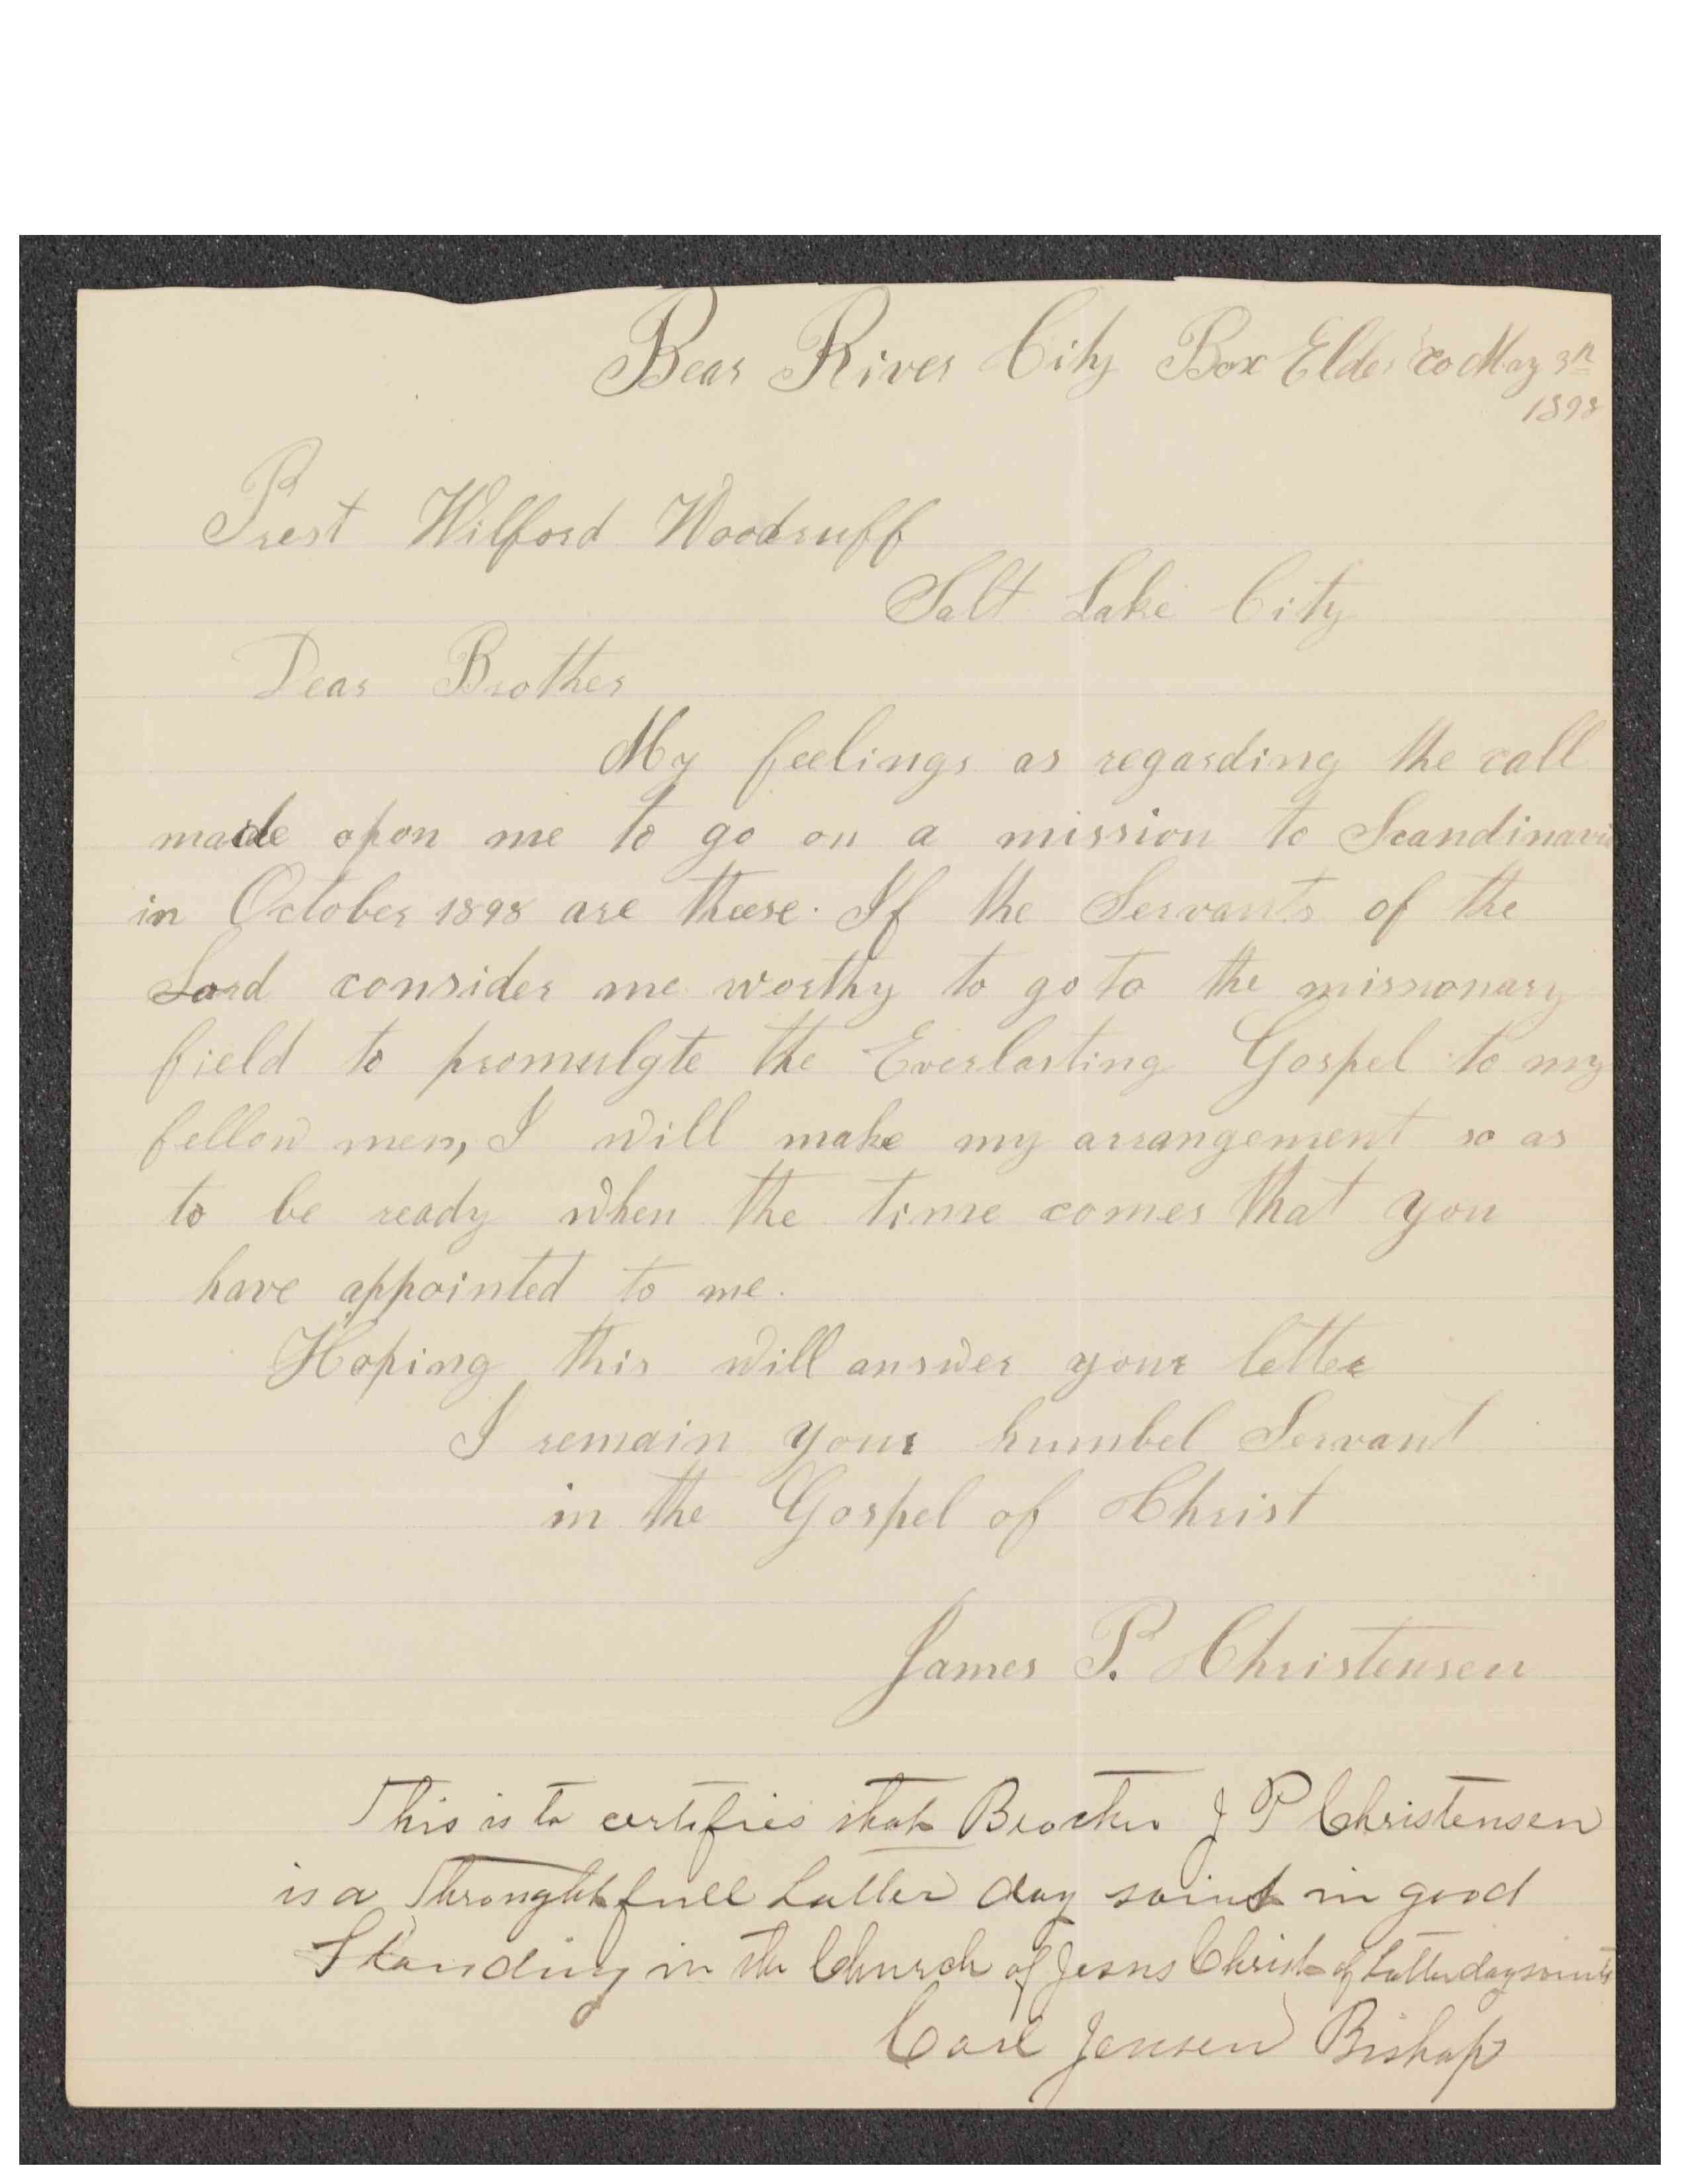 Bear River City Box Elder Co May 3rd
1898
Prest Wilford Woodruff
Salt Lake City
Dear Brother
My feelings as regarding the call
made opon me to go on a mission to Scandinavia
in October 1898 are theese. If the Servants of the
Lord consider me worthy to go to the missionary
field to promulgte the Everlasting Gospel to my
fellow men, I will make my arrangement so as
to be ready when the time comes that you
have appointed to me.
Hoping this will answer your letter
I remain your humbel Servant
in the Gospel of Christ
James P. Christensen
This is to certifies that Brother J P Christensen
is a full Latter day saint in good
Standing in the Church of Jesus Christ of Latter day saints
Carl Jensen Bishop